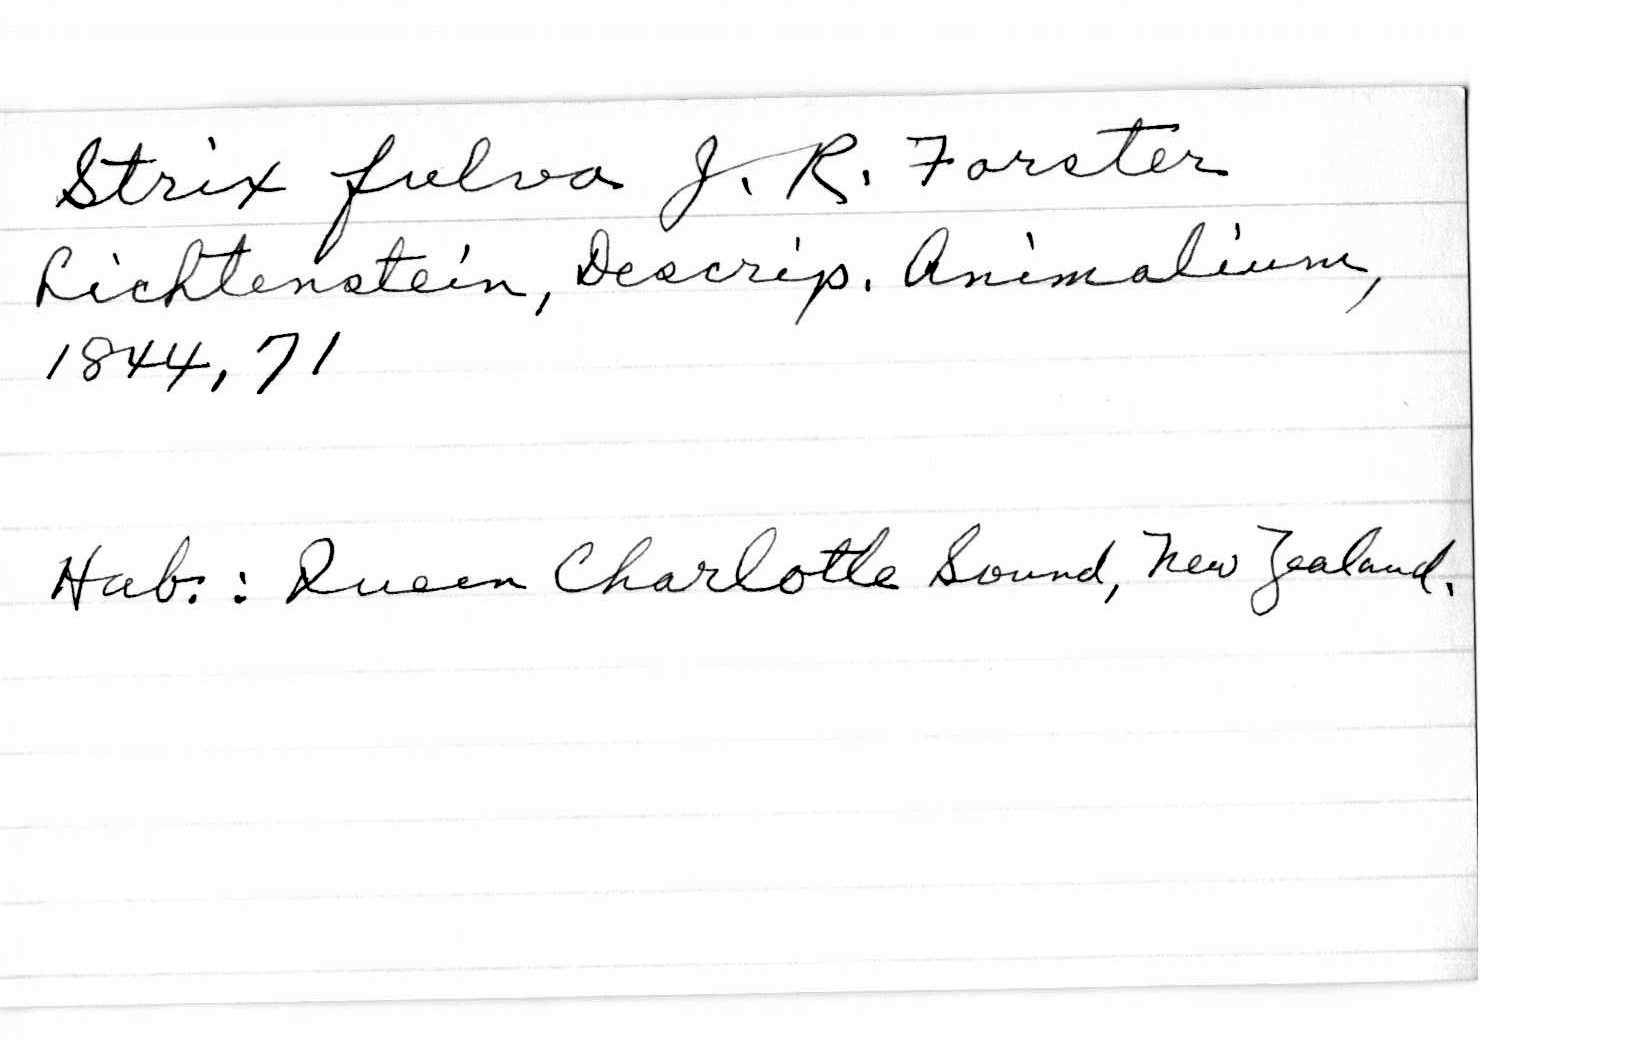 Strix fulva J. R. Forster
Lichtenstein, Descrip. Animalium,
1844, 71
Hab. : Queen Charlotte Sound, New Zealand.